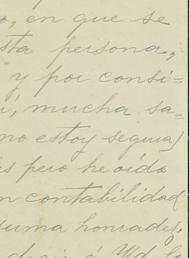 o, en que se
sta persona,
y por consi-
i, mucha sa-
no estoy segura)
es pero he oido
n contabilidad
suma honradez.
decir á Vd la